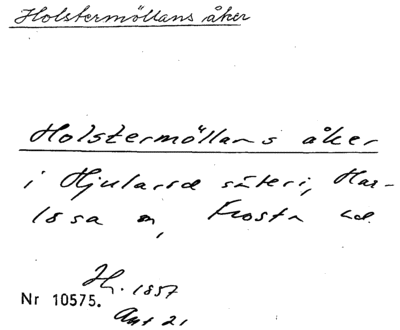 Holstermöllans åker
Holstermöllans åker
i Hjularöd säteri, Har-
lösa sn, Frosta hd.
Hr. 1857
Nr 10575.
Akt 21